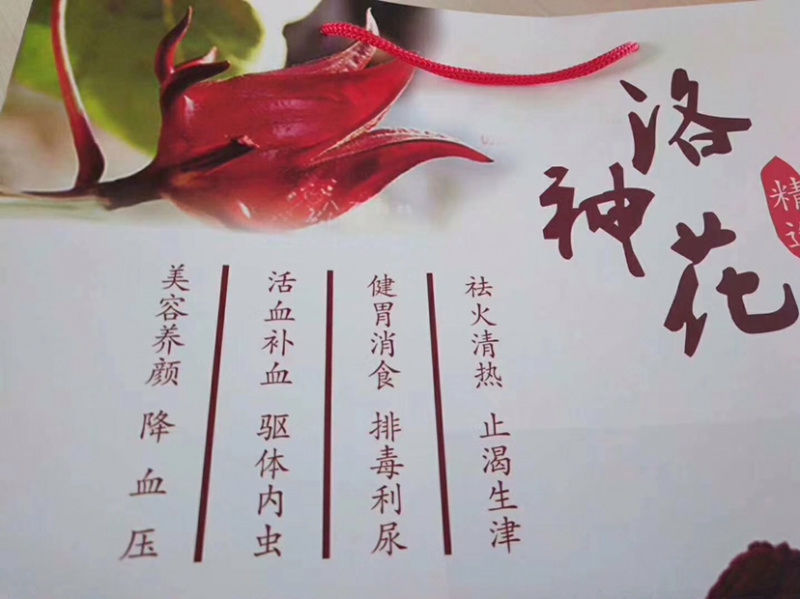 洛神花
精选
祛火清热 止渴生津
健胃消食 排毒利尿
活血补血 驱体内虫
美容养颜 降血压